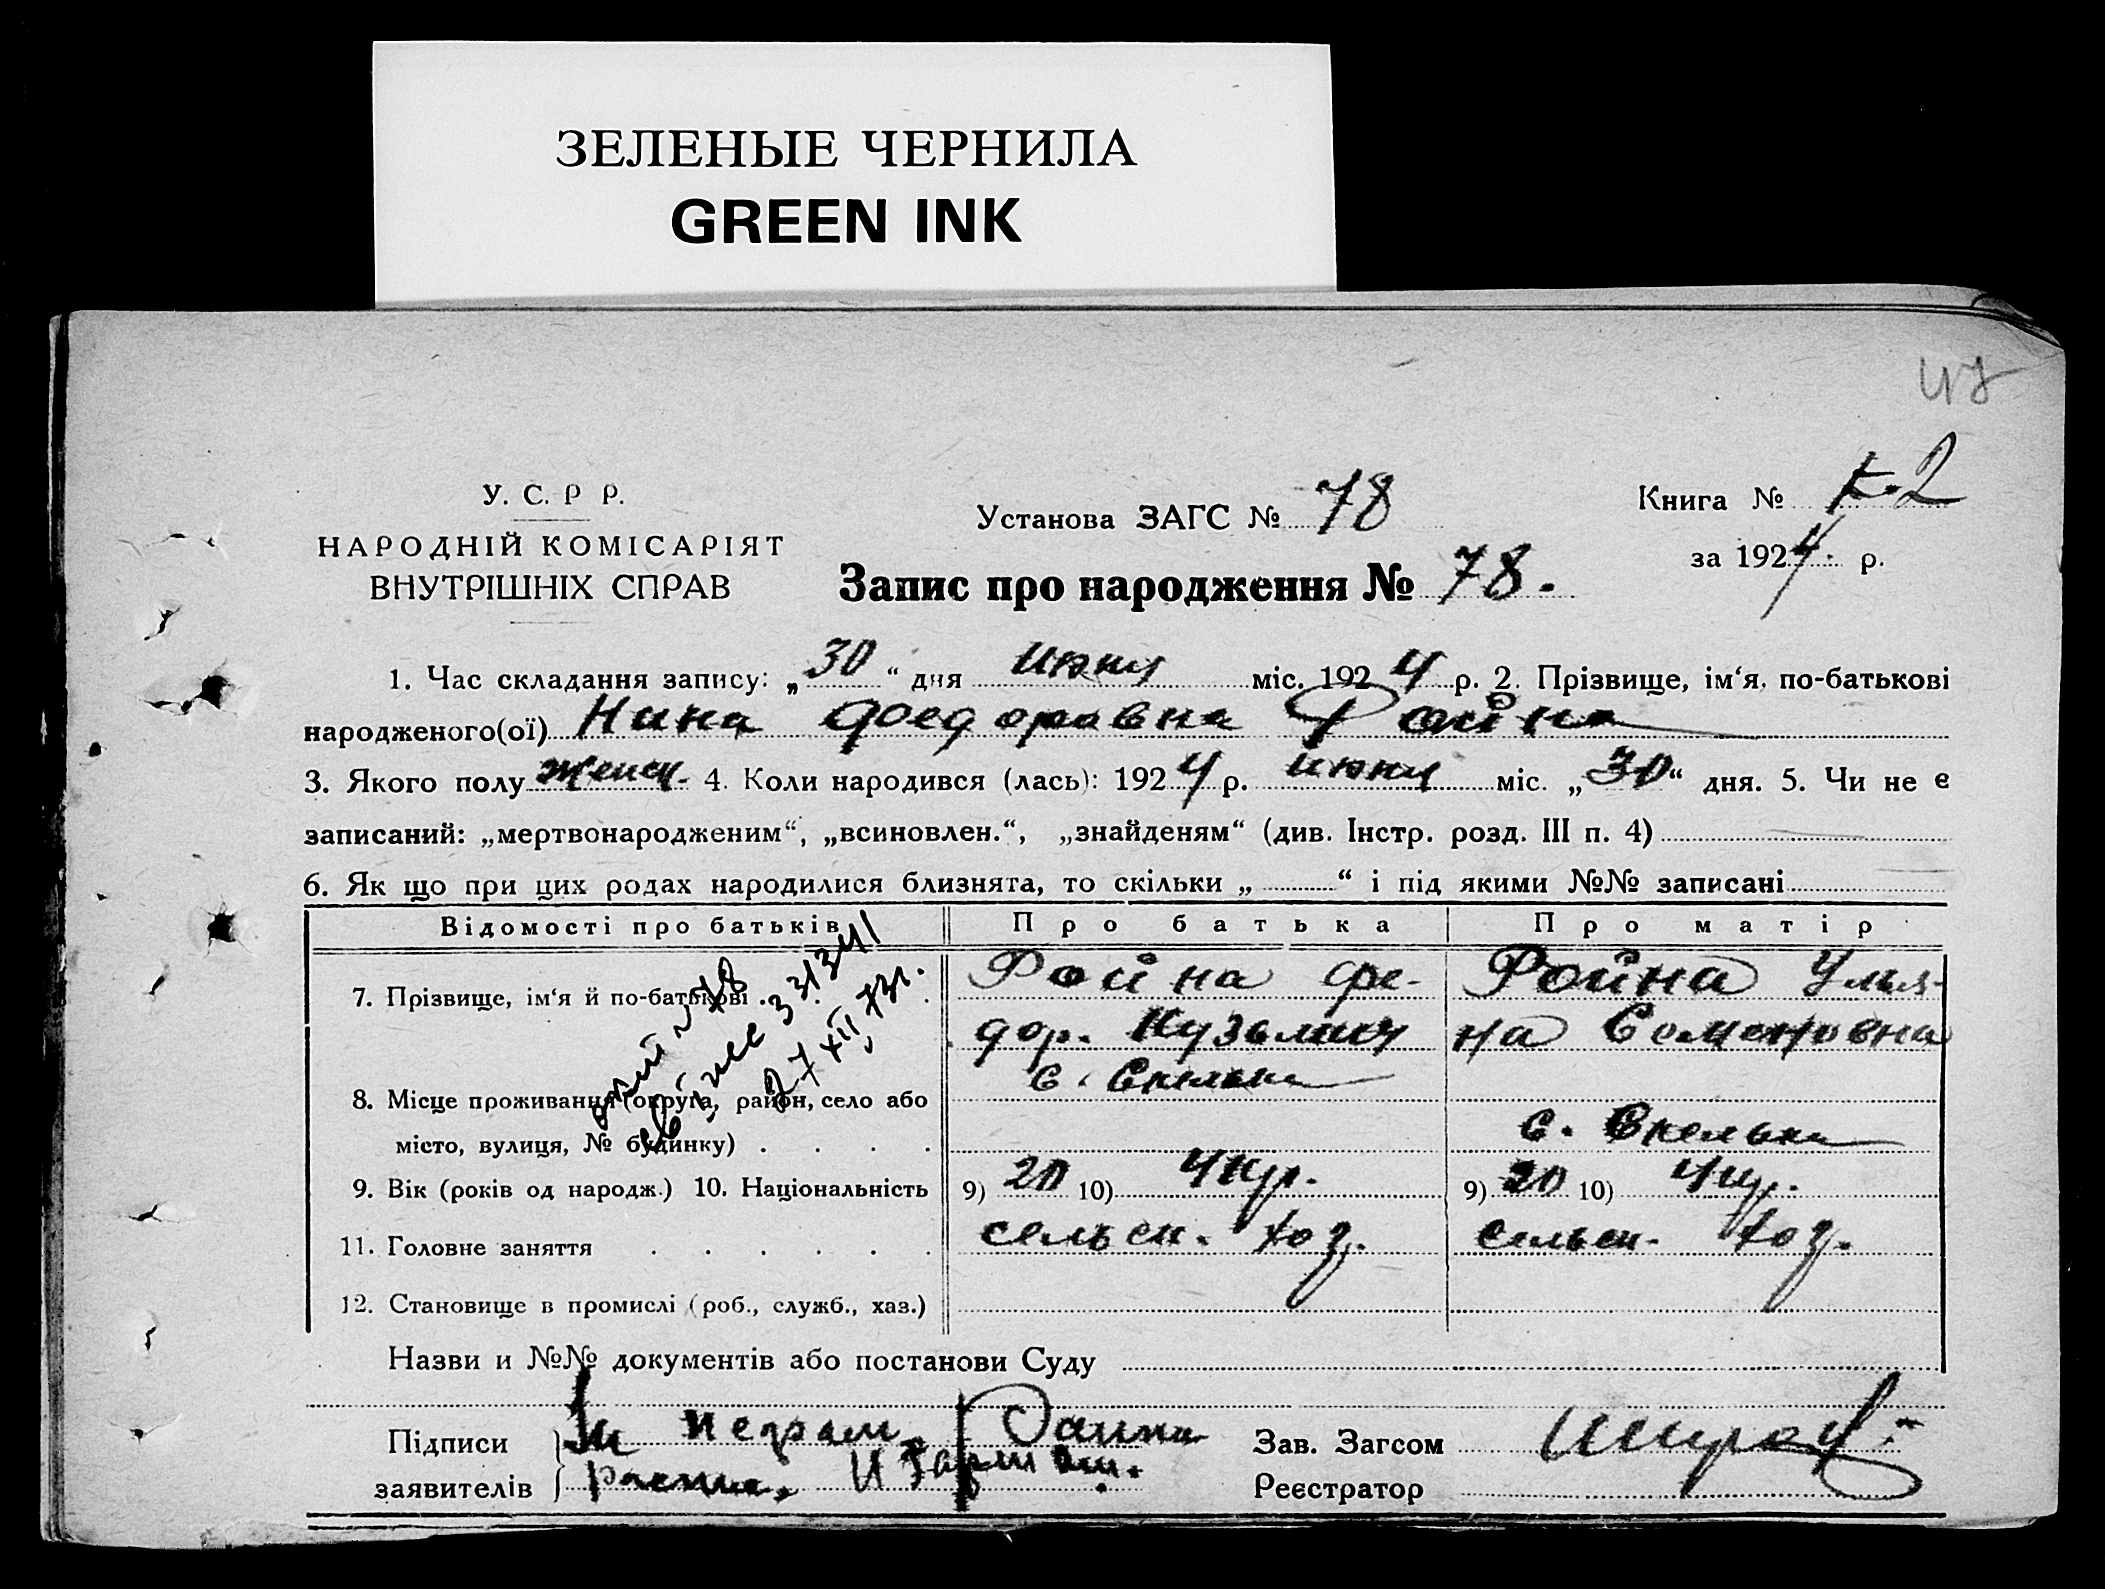 ЗЕЛЕНЫЕ ЧЕРНИЛА
GREEN INK
47
У. С. Р Р.
НАРОДНІЙ КОМІСАРІЯТ
ВНУТРІШНІХ СПРАВ
Установа ЗАГС № 78
Запис про народження № 78.
Книга № 2
за 1924 р.
1. Час складання запису: „30“ дня июня міс. 1924 р. 2. Прізвище, ім‘я, по-батькові
народженого(ої) Нина Федоровна Ройна
3. Якого полу женск. 4. Коли народився (лась): 1924 р. июня міс. „30“ дня. 5. Чи не є
записаний: „мертвонародженим“, „всиновлен.“, „знайденям“ (див. Інстр. розд. III п. 4)
6. Як що при цих родах народилися близнята, то скільки „ “ і під якими №№ записані
Відомості про батьків
Про батька
Про матір
7. Прізвище, ім‘я й по-батькові
Ройна Фе-
дор. Кузьмич
Ройна Улья-
на Семеновна
8. Місце проживання (округа, район, село або
місто, вулиця, № будинку)
с. Скельки
с. Скельки
9. Вік (років од народж.) 10. Національність
9) 20 10) Укр.
9) 20 10) Укр.
11. Головне заняття
сельск. хоз.
сельск. хоз.
12. Становище в промислі (роб., служб., хаз.)
78
27 XII 73г.
Назви и №№ документів або постанови Суду
Підписи
заявителів
За неграм. Ройна
распис.
Зав. Загсом
Реєстратор